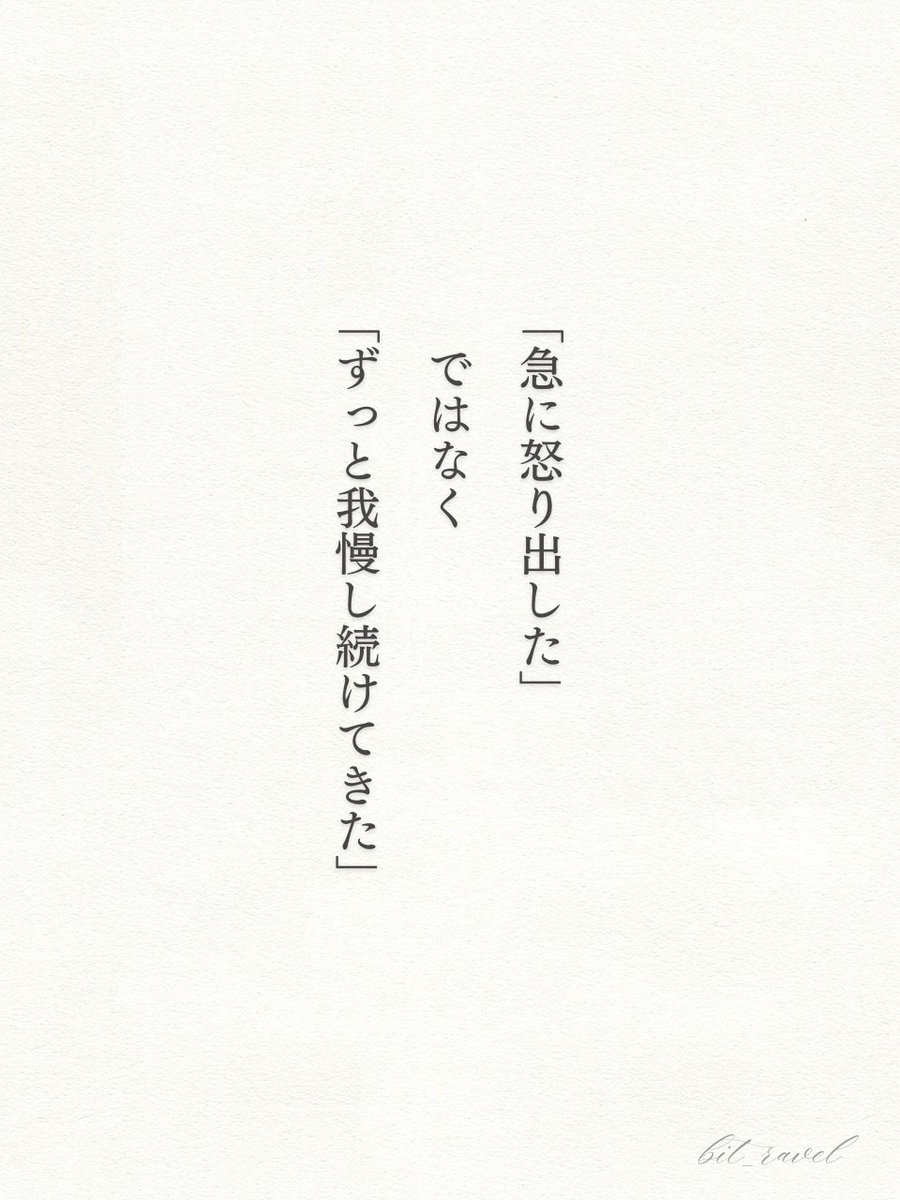 「急に怒り出した」
ではなく
「ずっと我慢し続けてきた」
bit_ravel